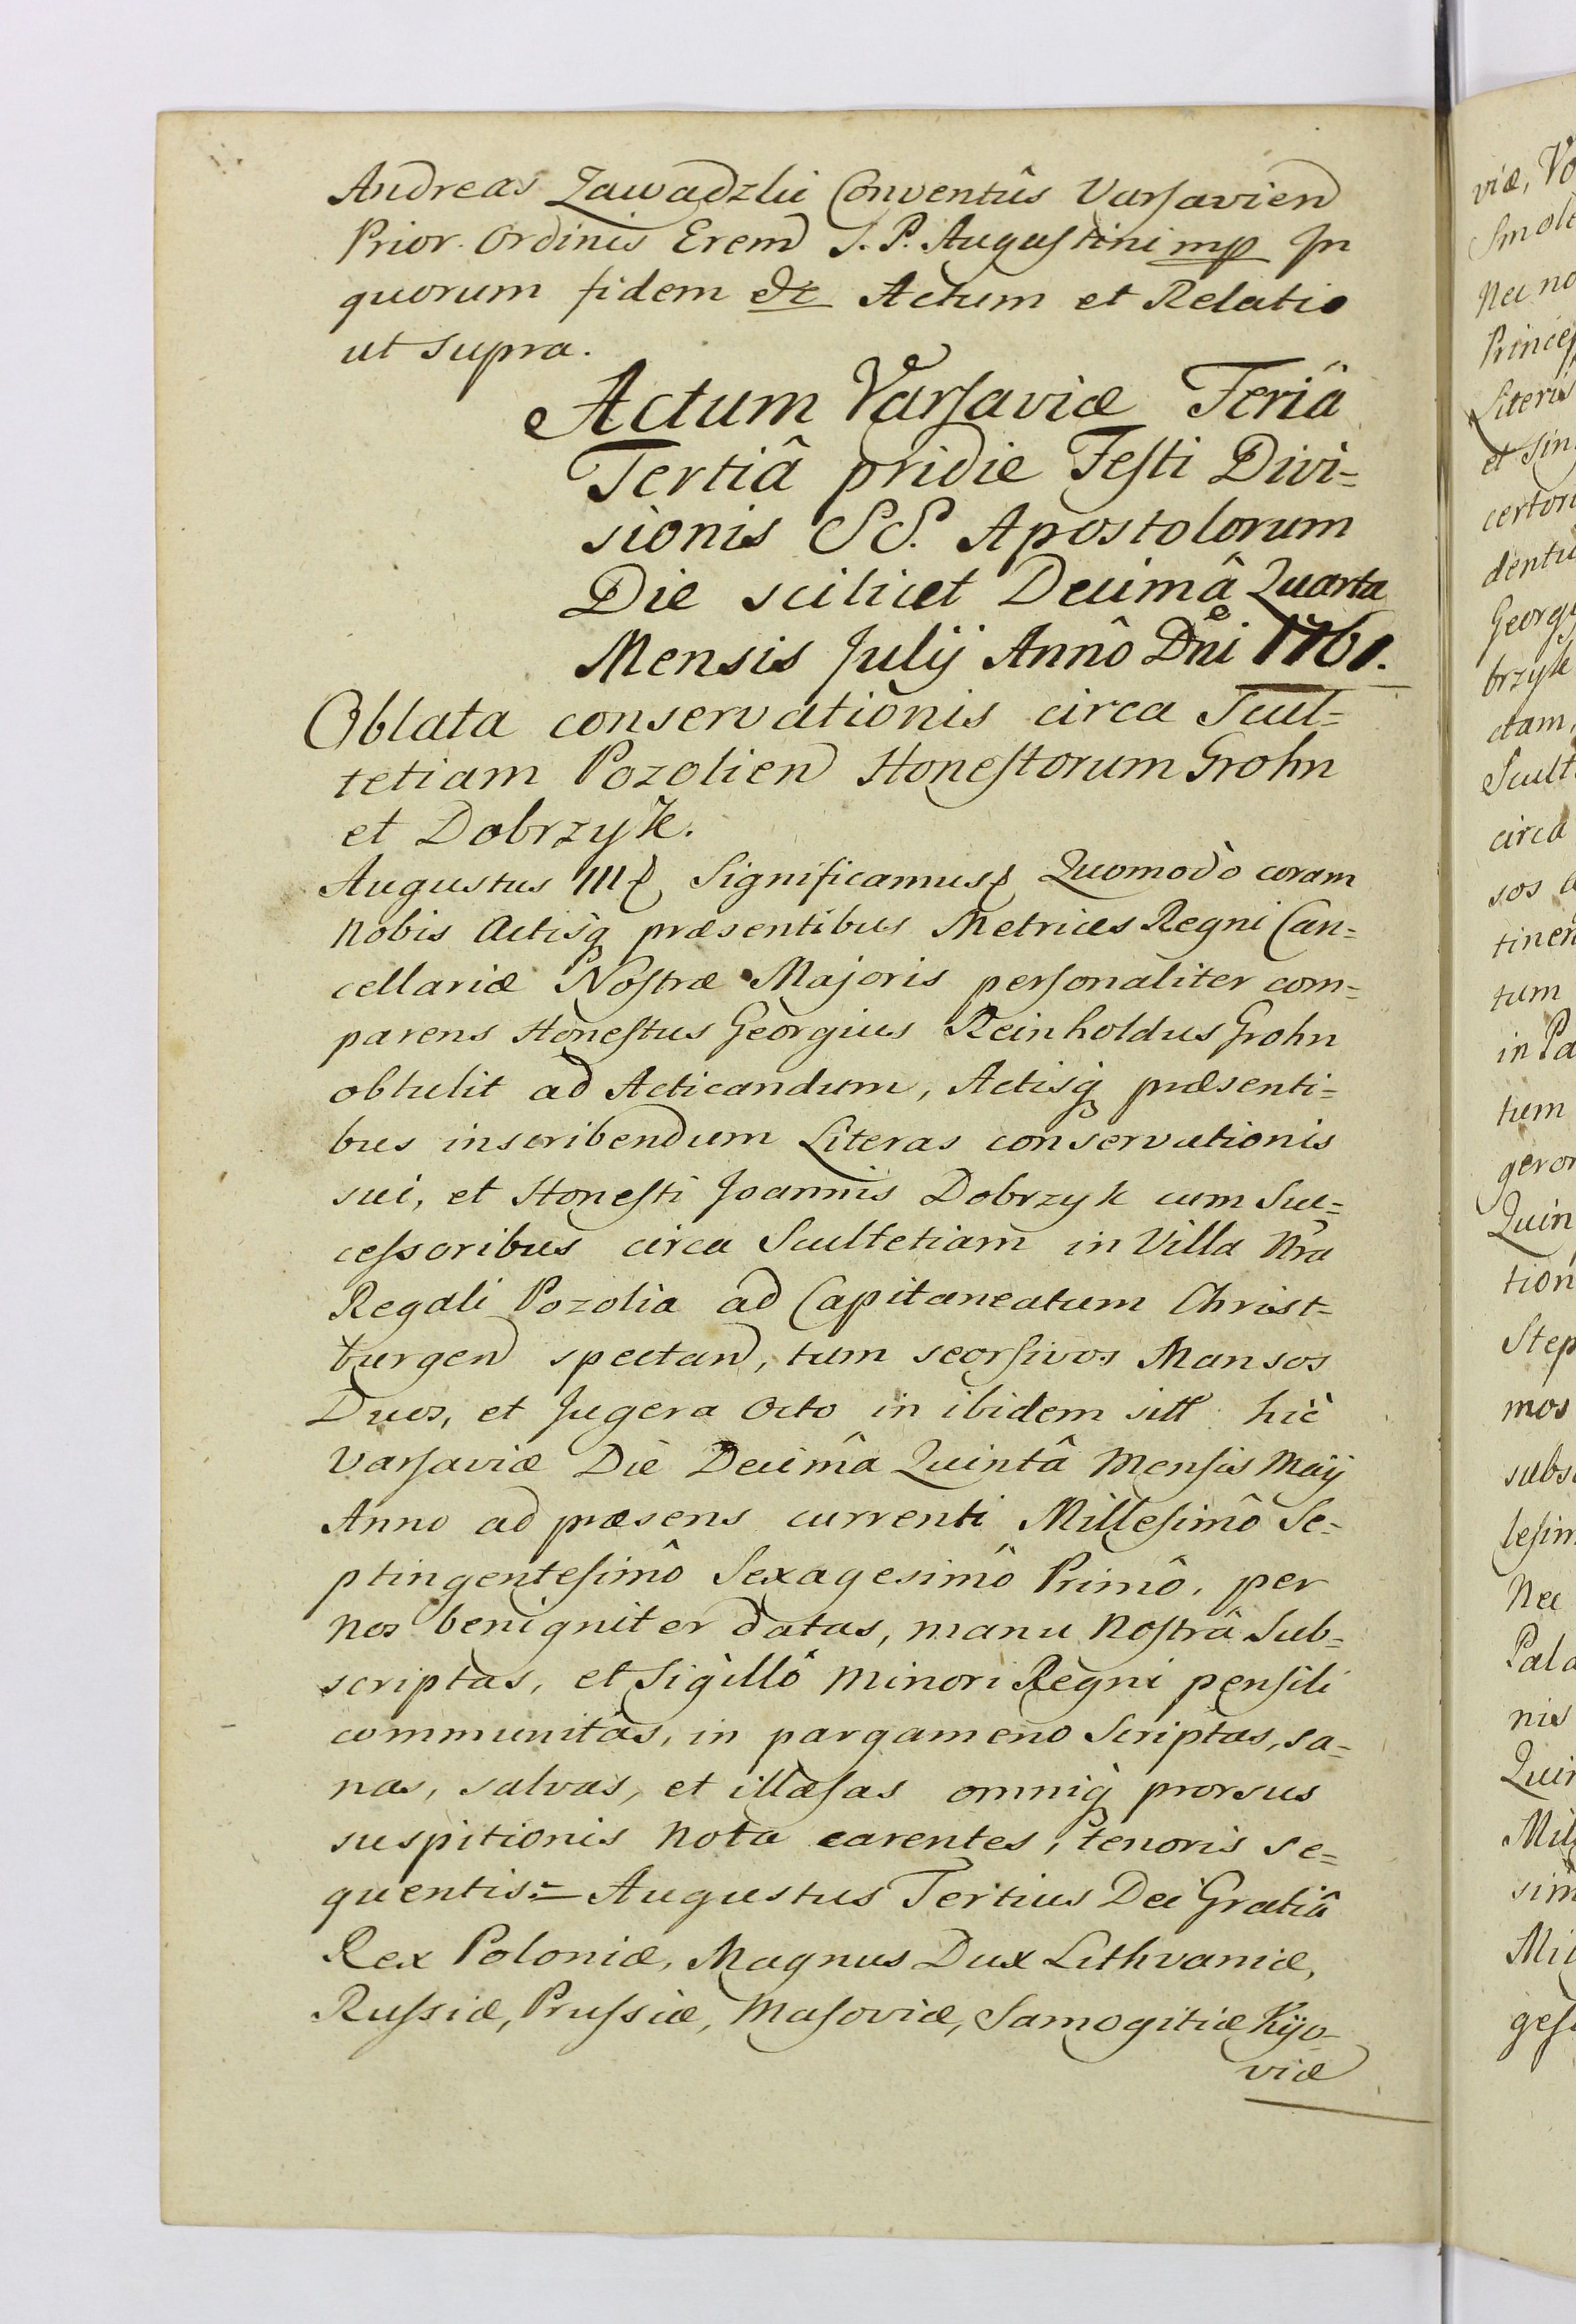 Andreas Zawadzki Conventûs Varsavien
Prior Ordinis Erem S. P. Augustini mp In
quorum fidem &c Actum et Relatio
ut supra.
Actum Varsaviæ Feriâ
Tertiâ pridie Festi Divi=
sionis SS. Apostolorum
Die scilicet Decimâ Quarta
Mensis Julij Annô Dni 1761.
Oblata conservationis circa Scul=
tetiam Pozolien Honestorum Grohn
et Dobrzyk.
Augustus III Significamus Quomodò coram
Nobis Actisq præsentibus Metrices Regni Can=
cellariæ Nostræ Majoris personaliter com=
parens Honestus Georgius Reinholdus Grohn
obtulit ad Acticandum, Actisq præsenti=
bus inscribendum Literas conservationis
sui, et Honesti Joannis Dobrzyk cum Suc=
cessoribus circa Scultetiam in Villa Nra
Regali Pozolia ad Capitaneatum Christ=
burgen spectan, tum seorsivos Mansos
Duos, et Jugera Octo in ibidem sitt hìc
Varsaviæ Diè Decimâ Quintâ Mensis Maij
Anno ad præsens currenti Millesimô Se=
ptingentesimô Sexagesimô Primô, per
Nos benigniter datas, manu Nostrâ Sub=
scriptas, et Sigillô Minori Regni pensili
communitas, in pargameno Scriptas, sa=
nas, salvas, et illæsas omniq prorsus
suspitionis Nota carentes, tenoris se=
quentis:= Augustus Tertius Dei Gratiâ
Rex Poloniæ, Magnus Dux Lithvaniæ,
Russiæ, Prussiæ, Masoviæ, Samogitiæ Kijo=
viæ
viæ, Vo
Smole
Nec no
Princep
Literis
et Sin
certor
dentu
Georgi
brzyk
ctam,
Scult
circa
sos
tinen
tum
in Pa
tum
geror
Quin
tion
Step
mos
subs
lesim
Nec
Pala
nis
Quin
Mill
sim
Mil
gesi